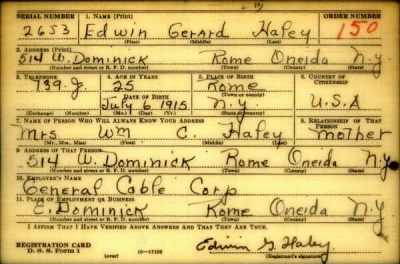 SERIAL NUMBER 1. NAME (Print) ORDER NUMBER
2653 Edwin Gerard Haley 150
(First) (Middle) (Last)
2. ADDRESS (Print)
514 W. Dominick Rome Oneida N.Y.
(Number and street or R. F. D. number) (Town) (County) (State)
3. TELEPHONE 4. AGE IN YEARS 5. PLACE OF BIRTH 6. COUNTRY OF CITIZENSHIP
739-J. 25 Rome
DATE OF BIRTH (Town or county)
July 6 1915 N.Y. U.S.A
(Exchange) (Number) (Mo.) (Day) (Yr.) (State or country)
7. NAME OF PERSON WHO WILL ALWAYS KNOW YOUR ADDRESS 8. RELATIONSHIP OF THAT PERSON
Mrs Wm C. Haley Mother
(Mr., Mrs., Miss) (First) (Middle) (Last)
9. ADDRESS OF THAT PERSON
514 W. Dominick Rome Oneida N.Y.
(Number and street or R. F. D. number) (Town) (County) (State)
10. EMPLOYER'S NAME
General Cable Corp
11. PLACE OF EMPLOYMENT OR BUSINESS
E. Dominick Rome Oneida N.Y.
(Number and street or R. F. D. number) (Town) (County) (State)
I AFFIRM THAT I HAVE VERIFIED ABOVE ANSWERS AND THAT THEY ARE TRUE.
REGISTRATION CARD
D. S. S. Form 1 (over) 16-17105 Edwin G. Haley
(Registrant's signature)